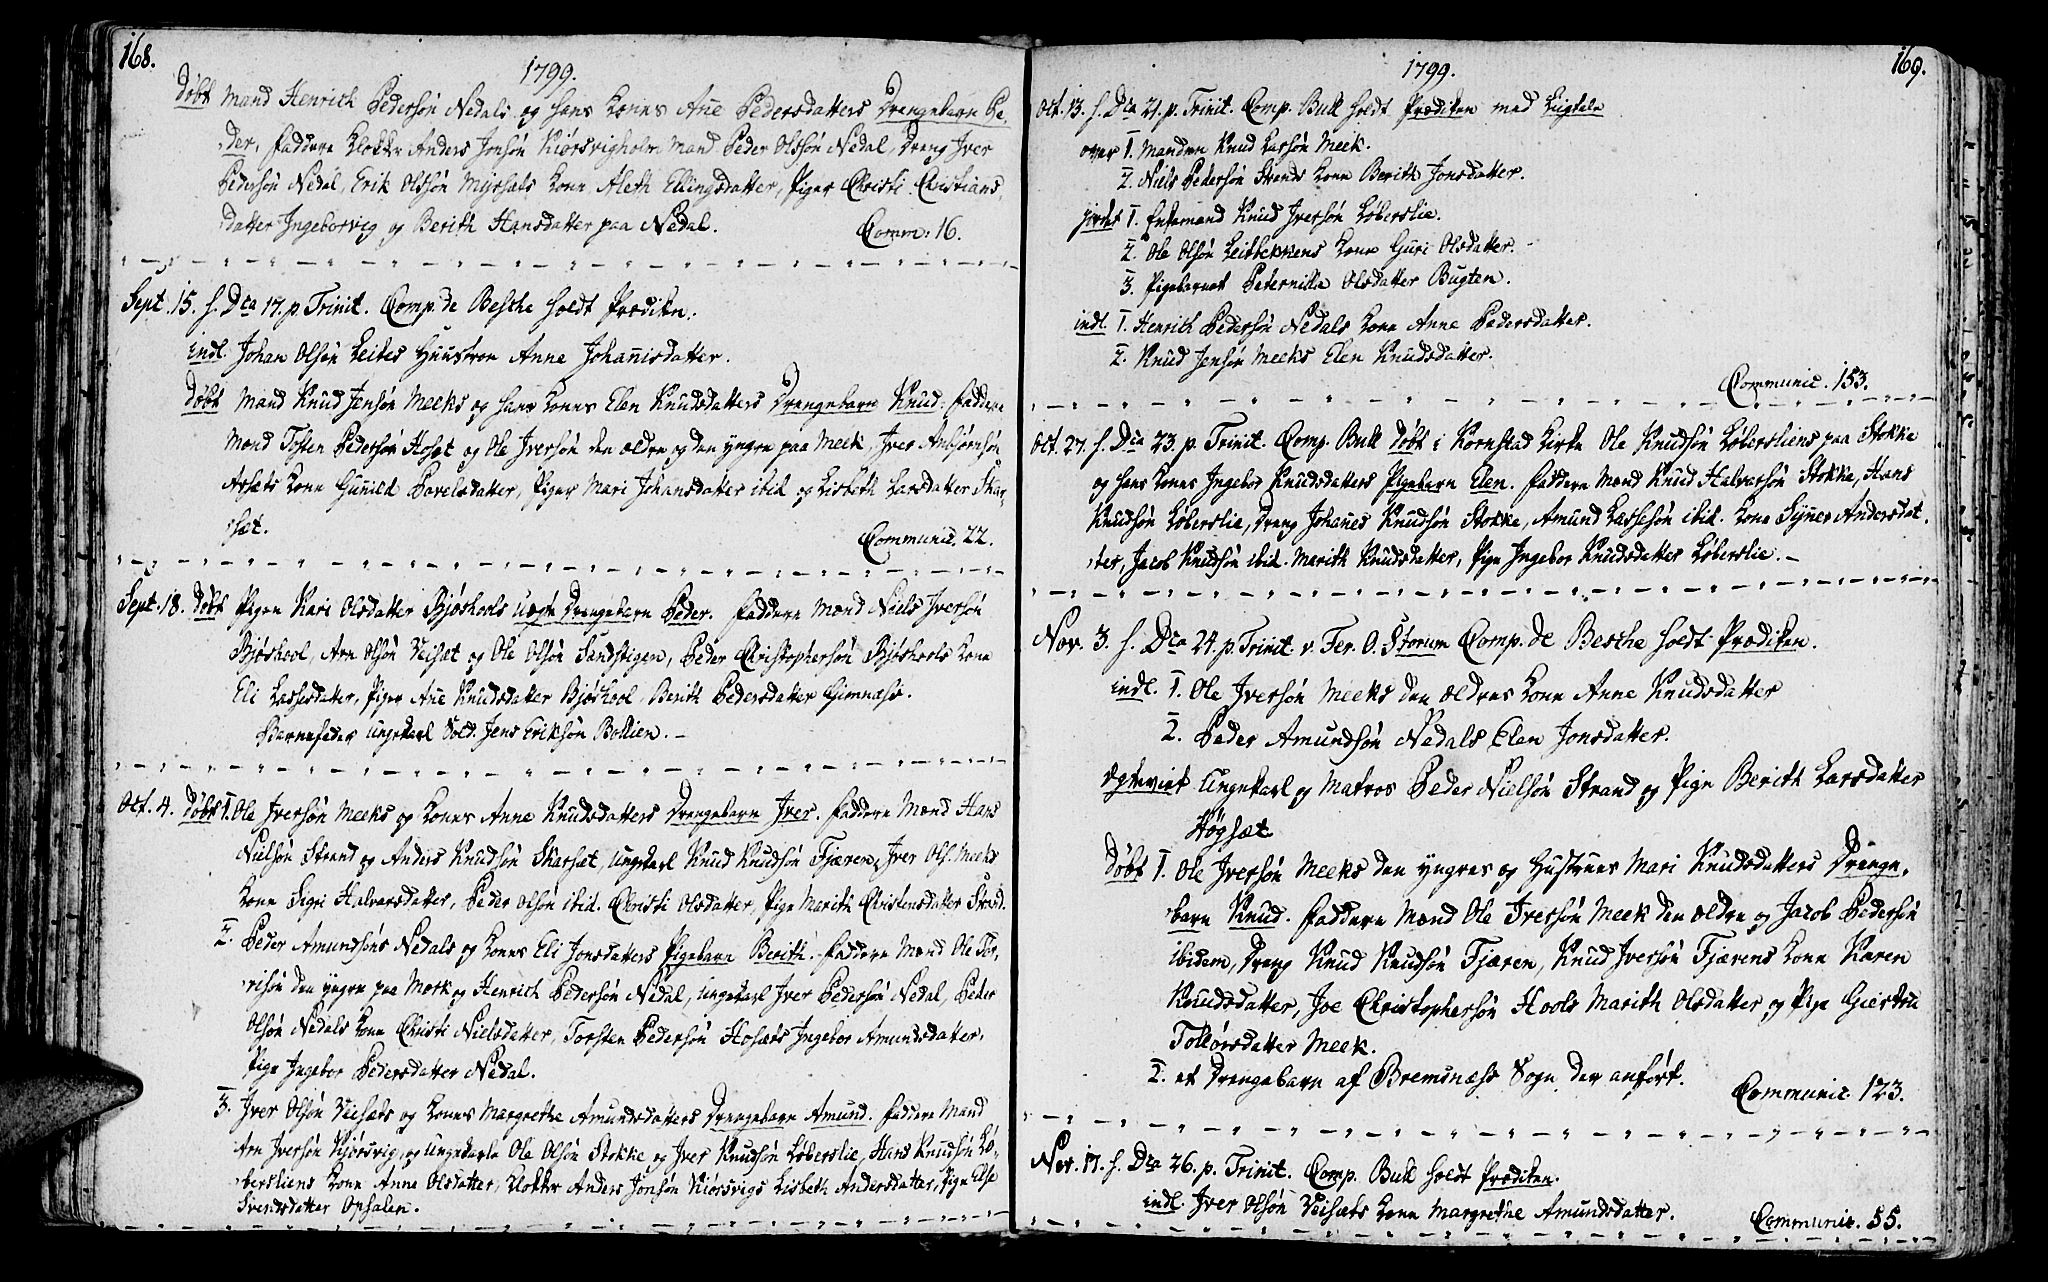 168.
1799.
Døbt Mand Henrich Pedersøn Nedals og hans Kones Ane Pedersdatters Drengebarn Pe-
der, Faddere Klokker Anders Jonsøn Kiørsvigholm, Mand Peder Olsøn Nedal, Dreng Iver
Pedersøn Nedal, Erik Olsøn Myrsæts Kone Aleth Ellingsdatter, Piger Christi Christians
datter Ingeborvig og Berith Hansdatter paa Nedal. Comm: 16.
Sept. 15. h. Dca 17. p. Trinit. Comp. de Besche holdt Prædiken.
indl. Johan Olsøn Leites Huustroe Anne Johanisdatter.
døbt Mand Knud Jensøn Meeks og hans Kones Elen Knudsdatters Drengebarn Knud. Faddere
Mænd Tosten Pedersøn Hosæt og Ole Iversøn den ældre og den yngre paa Meek, Iver Anbjørnsøn
Arsæts Kone Gunild Povelsdatter, Piger Mari Johansdatter ibid og Lisbeth Larsdatter Skar-
sæt. Communic. 22.
Sept. 18. døbt Pigen Kari Olsdatter Bjøshools uægte Drengebarn Peder. Faddere Mænd Niels Iversøn
Bjøshool, Arn Olsøn Veisæt og Ole Olsøn Sandstigen, Peder Christophersøn Bjøshools Kone
Eli Lassesdatter, Piger Ane Knudsdatter Bjøshool, Berith Pedersdatter Gimnæss.
Barnefader Ungekarl Sold. Jens Eriksøn Bollien.
Oct. 4. døbt 1. Ole Iversøn Meeks og Kones Anne Knudsdatters Drengebarn Iver. Faddere Mænd Hans
Nielsøn Strand og Anders Knudsøn Skarsæt, Ungekarl Knud Knudsøn Fjæren, Iver Ols. Meeks
Kone Sigri Halvarsdatter, Peder Olsøn ibid. Christi Olsdatter, Pige Marith Christensdatter Strand.
2. Peder Amundsøns Nedals og Kones Eli Jonsdatters Pigebarn Berith. Faddere Mænd Ole Iver-
søn den yngre paa Meek og Henrich Pedersøn Nedal, Ungekarl Iver Pedersøn Nedal, Peder
Olsøn Nedals Kone Christi Nielsdatter, Torsten Pedersøn Hosæts Ingebor Amundsdatter,
Pige Ingebor Pedersdatter Nedal.
3. Iver Olsøn Veisæts og Kones Margrethe Amundsdatters Drengebarn Amund. Faddere Mænd
Arn Iversøn Kiørsvig, og Ungekarle Ole Olsøn Stokke og Iver Knudsøn Løberslie, Hans Knudsøn Lø-
bersliens Kone Anne Olsdatter, Klokker Anders Jonsøn Kiørsvigs Lisbeth Andersdatter, Pige Else
Svendsdatter Opsalen.
169.
1799.
Oct. 13. h. Dca 21. p. Trinit. Comp. Bull holdt Prædiken med Liigtale
over 1. Manden Knud Larsøn Meek.
2. Niels Pedersøn Strands Kone Berith Jonsdatter.
jordet 1. Enkemand Knud Iversøn Løberslie.
2. Ole Olsøn Leitbekkens Kone Guri Olsdatter.
3. Pigebarnet Peternilla Olsdatter Bugten.
indl. 1. Henrich Pedersøn Nedals Kone Anne Pedersdatter.
2. Knud Jensøn Meeks Elen Knudsdatter.
Communic. 153.
Oct. 27. h. Dca 23. p. Trinit. Comp. Bull døbt i Kornstad Kirke Ole Knudsøn Løbersliens paa Stokke
og hans Kones Ingebor Knudsdatters Pigebarn Elen. Faddere Mænd Knud Halvarsøn Stokke, Hans
Knudsøn Løberslie, Dreng Johanes Knudsøn Stokke, Amund Lassesøn ibid. Kone Synev Andersdat-
ter, Jacob Knudsøn ibid. Marith Knudsdatter, Pige Ingebor Knudsdatter Løberslie.
Nov. 3. h. Dca 24. p. Trinit. v. Fer. O. Storum Comp. de Besche holdt Prædiken.
indl. 1. Ole Iversøn Meeks den ældres Kone Anne Knudsdatter
2. Peder Amundsøn Nedals Elen Jonsdatter.
Ægteviet Ungekarl og Matros Peder Nielsøn Strand og Pige Berith Larsdatter
Høgsæt
Døbt 1. Ole Iversøn Meeks den yngres og Hustrues Mari Knudsdatters Drenge-
barn Knud. Faddere Mænd Ole Iversøn Meek den ældre og Jacob Pedersøn
ibidem, Dreng Knud Knudsøn Fjæren, Knud Iversøn Fjærens Kone Karen
Knudsdatter, Joe Christophersøn Hools Marith Olsdatter og Pige Giertru
Tollørsdatter Meek.
2. et Drengebarn af Bremsnæss Sogn der anført. Communic. 123.
Nov. 17. h. Dca 26. p. Trinit. Comp. Bull holdt Prædiken.
indl. Iver Olsøn Veisæts Kone Margrethe Amundsdatter. Communic. 55.